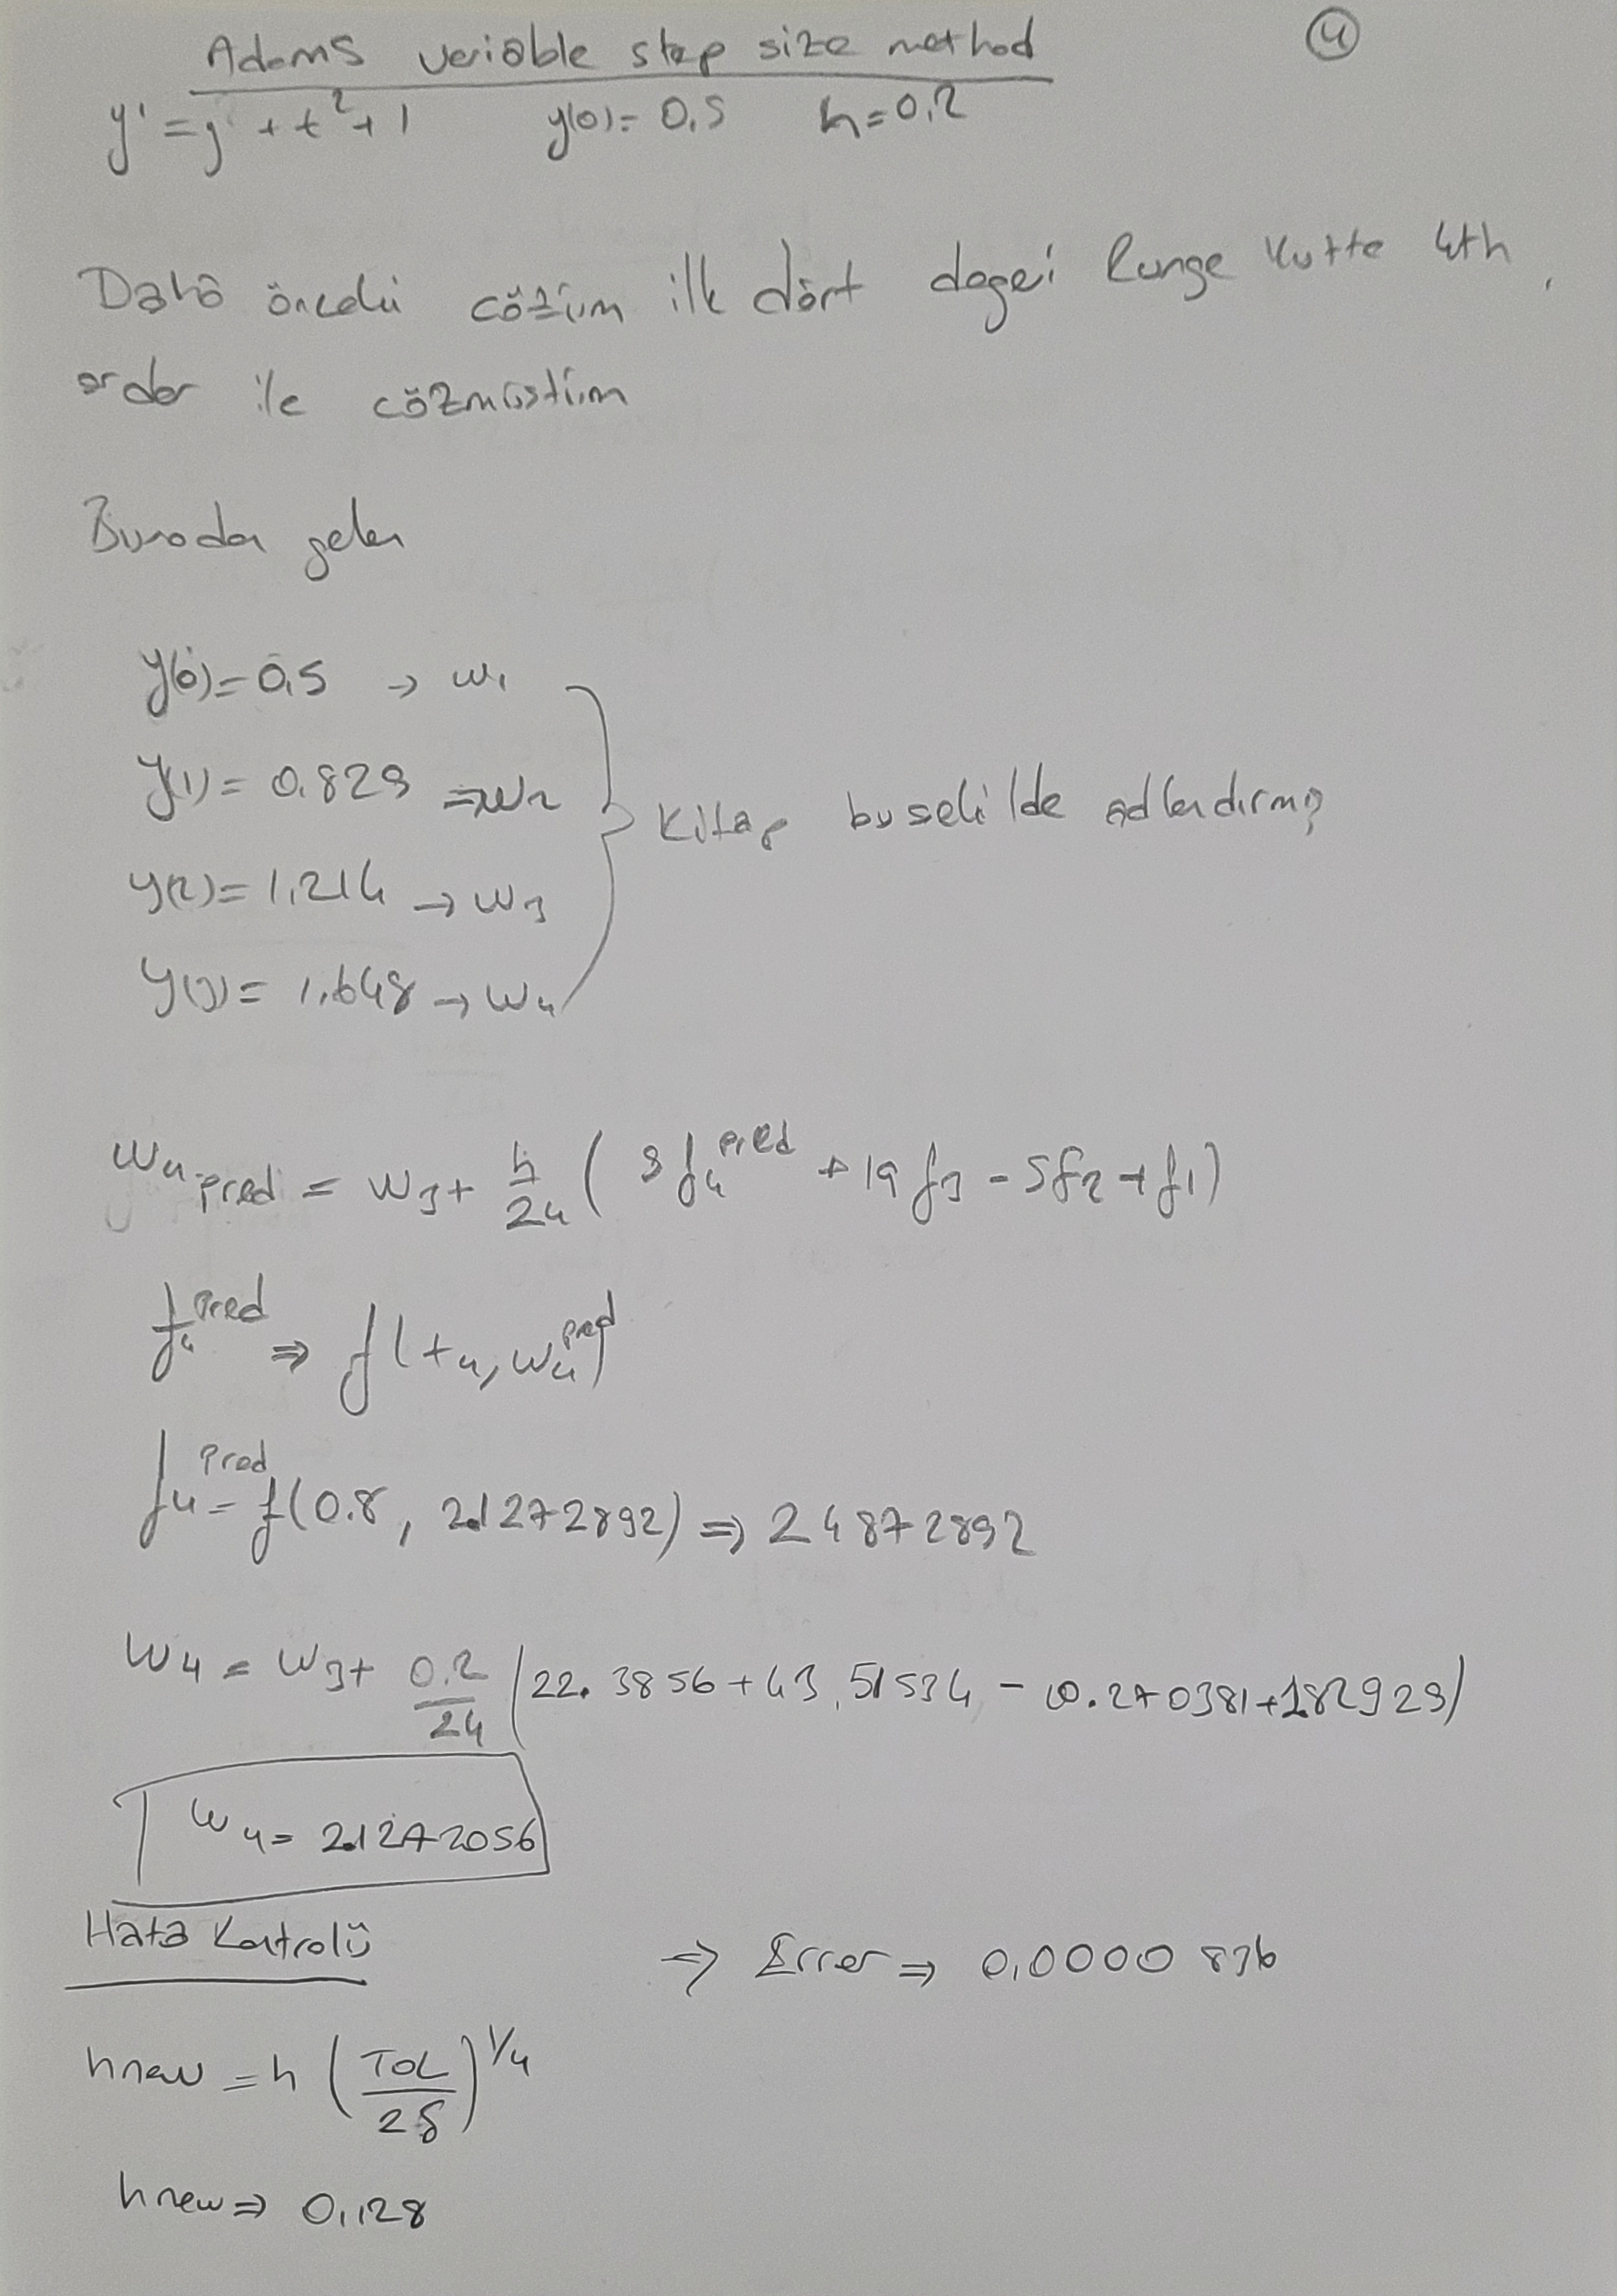 Adams variable step size method ④
y' = y + t² + 1 y(0) = 0,5 h = 0,2
Daha önceki çözüm ilk dört değeri Runge Kutta 4th
order ile çözmüştüm
Buradan gelen
y(0) = 0,5 → w₁
y(1) = 0.829 ⇒ w₂
y(2) = 1,214 → w₃
y(3) = 1,648 → w₄
Kitap bu şekilde adlandırmış
w₄ pred = w₃ + h/24 ( 9f₄^pred + 19f₃ - 5f₂ + f₁)
f₄^pred ⇒ f(t₄, w₄^pred)
f₄^pred = f(0.8, 2.1272892) ⇒ 2 4872892
w₄ = w₃ + 0.2/24 (22.3856 + 43,51534 - 10.270381 + 1.82929)
w₄ = 2.1272056
Hata Kontrolü ⇒ Error ⇒ 0,0000836
hnew = h (TOL/2δ)^1/4
hnew ⇒ 0,128